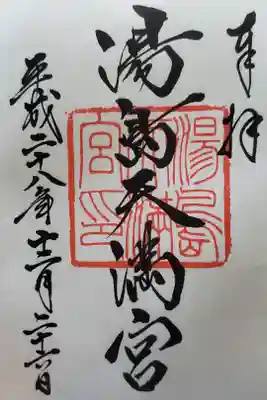 奉拝
湯島天満宮
湯島天満宮印
平成二十八年十二月二十六日